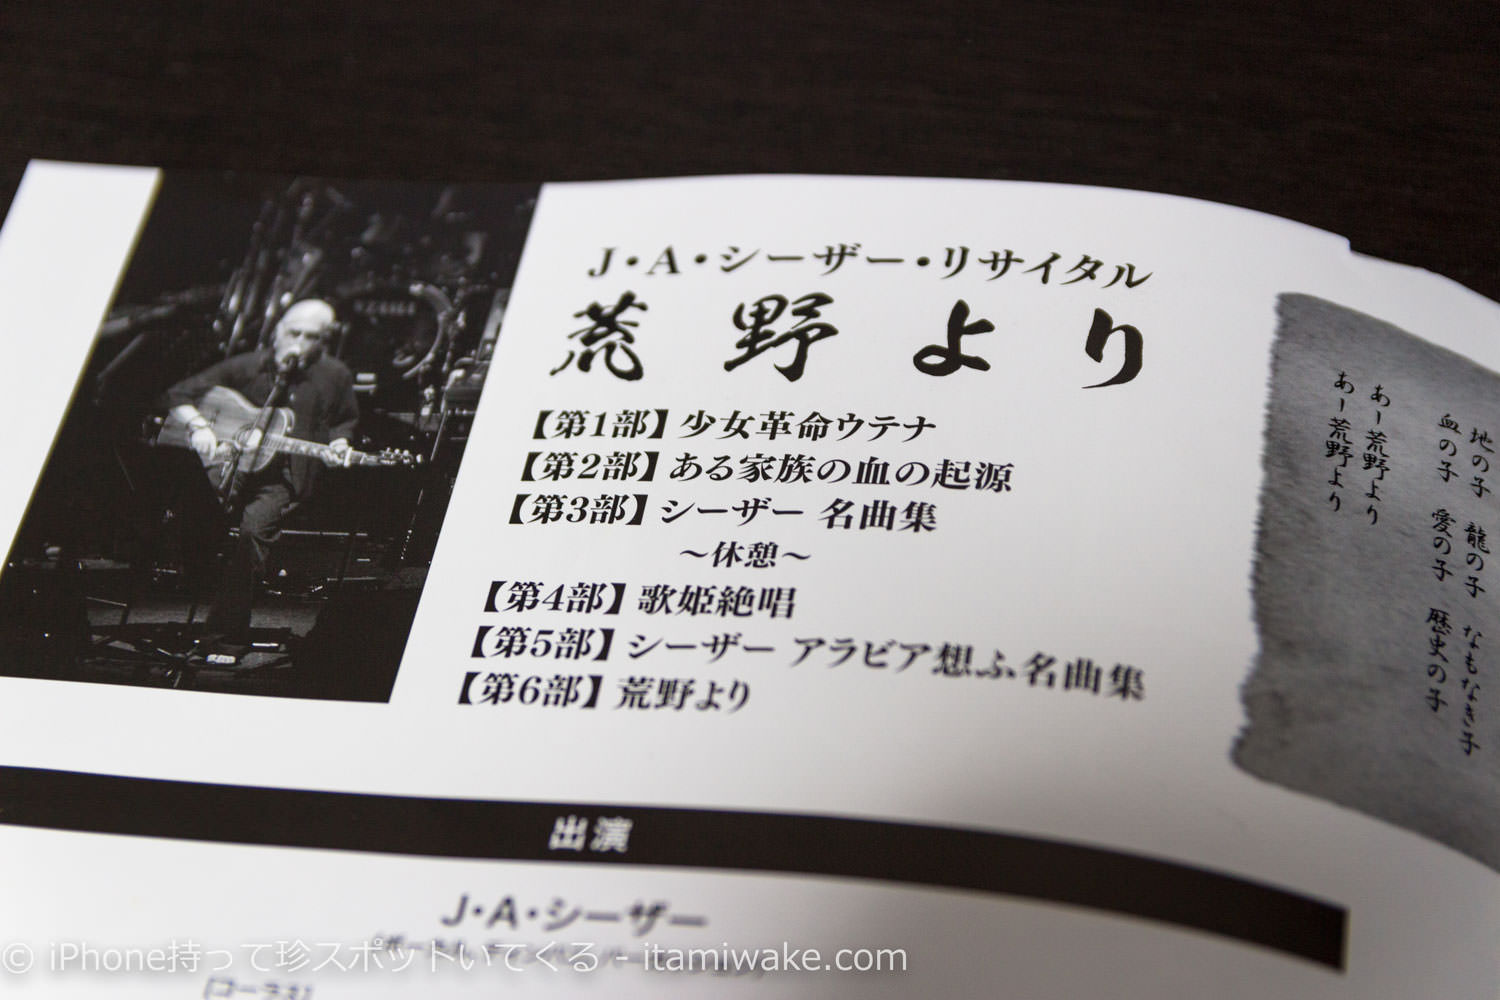 J・A・シーザー・リサイタル
荒野より
【第1部】少女革命ウテナ
【第2部】ある家族の血の起源
【第3部】シーザー 名曲集
～休憩～
【第4部】歌姫絶唱
【第5部】シーザー アラビア想ふ名曲集
【第6部】荒野より
地の子 龍の子 なもなき子
血の子 愛の子 歴史の子
あー荒野より
あー荒野より
出演
J・A・シーザー
[コーラス]
© iPhone持って珍スポットいてくる - itamiwake.com